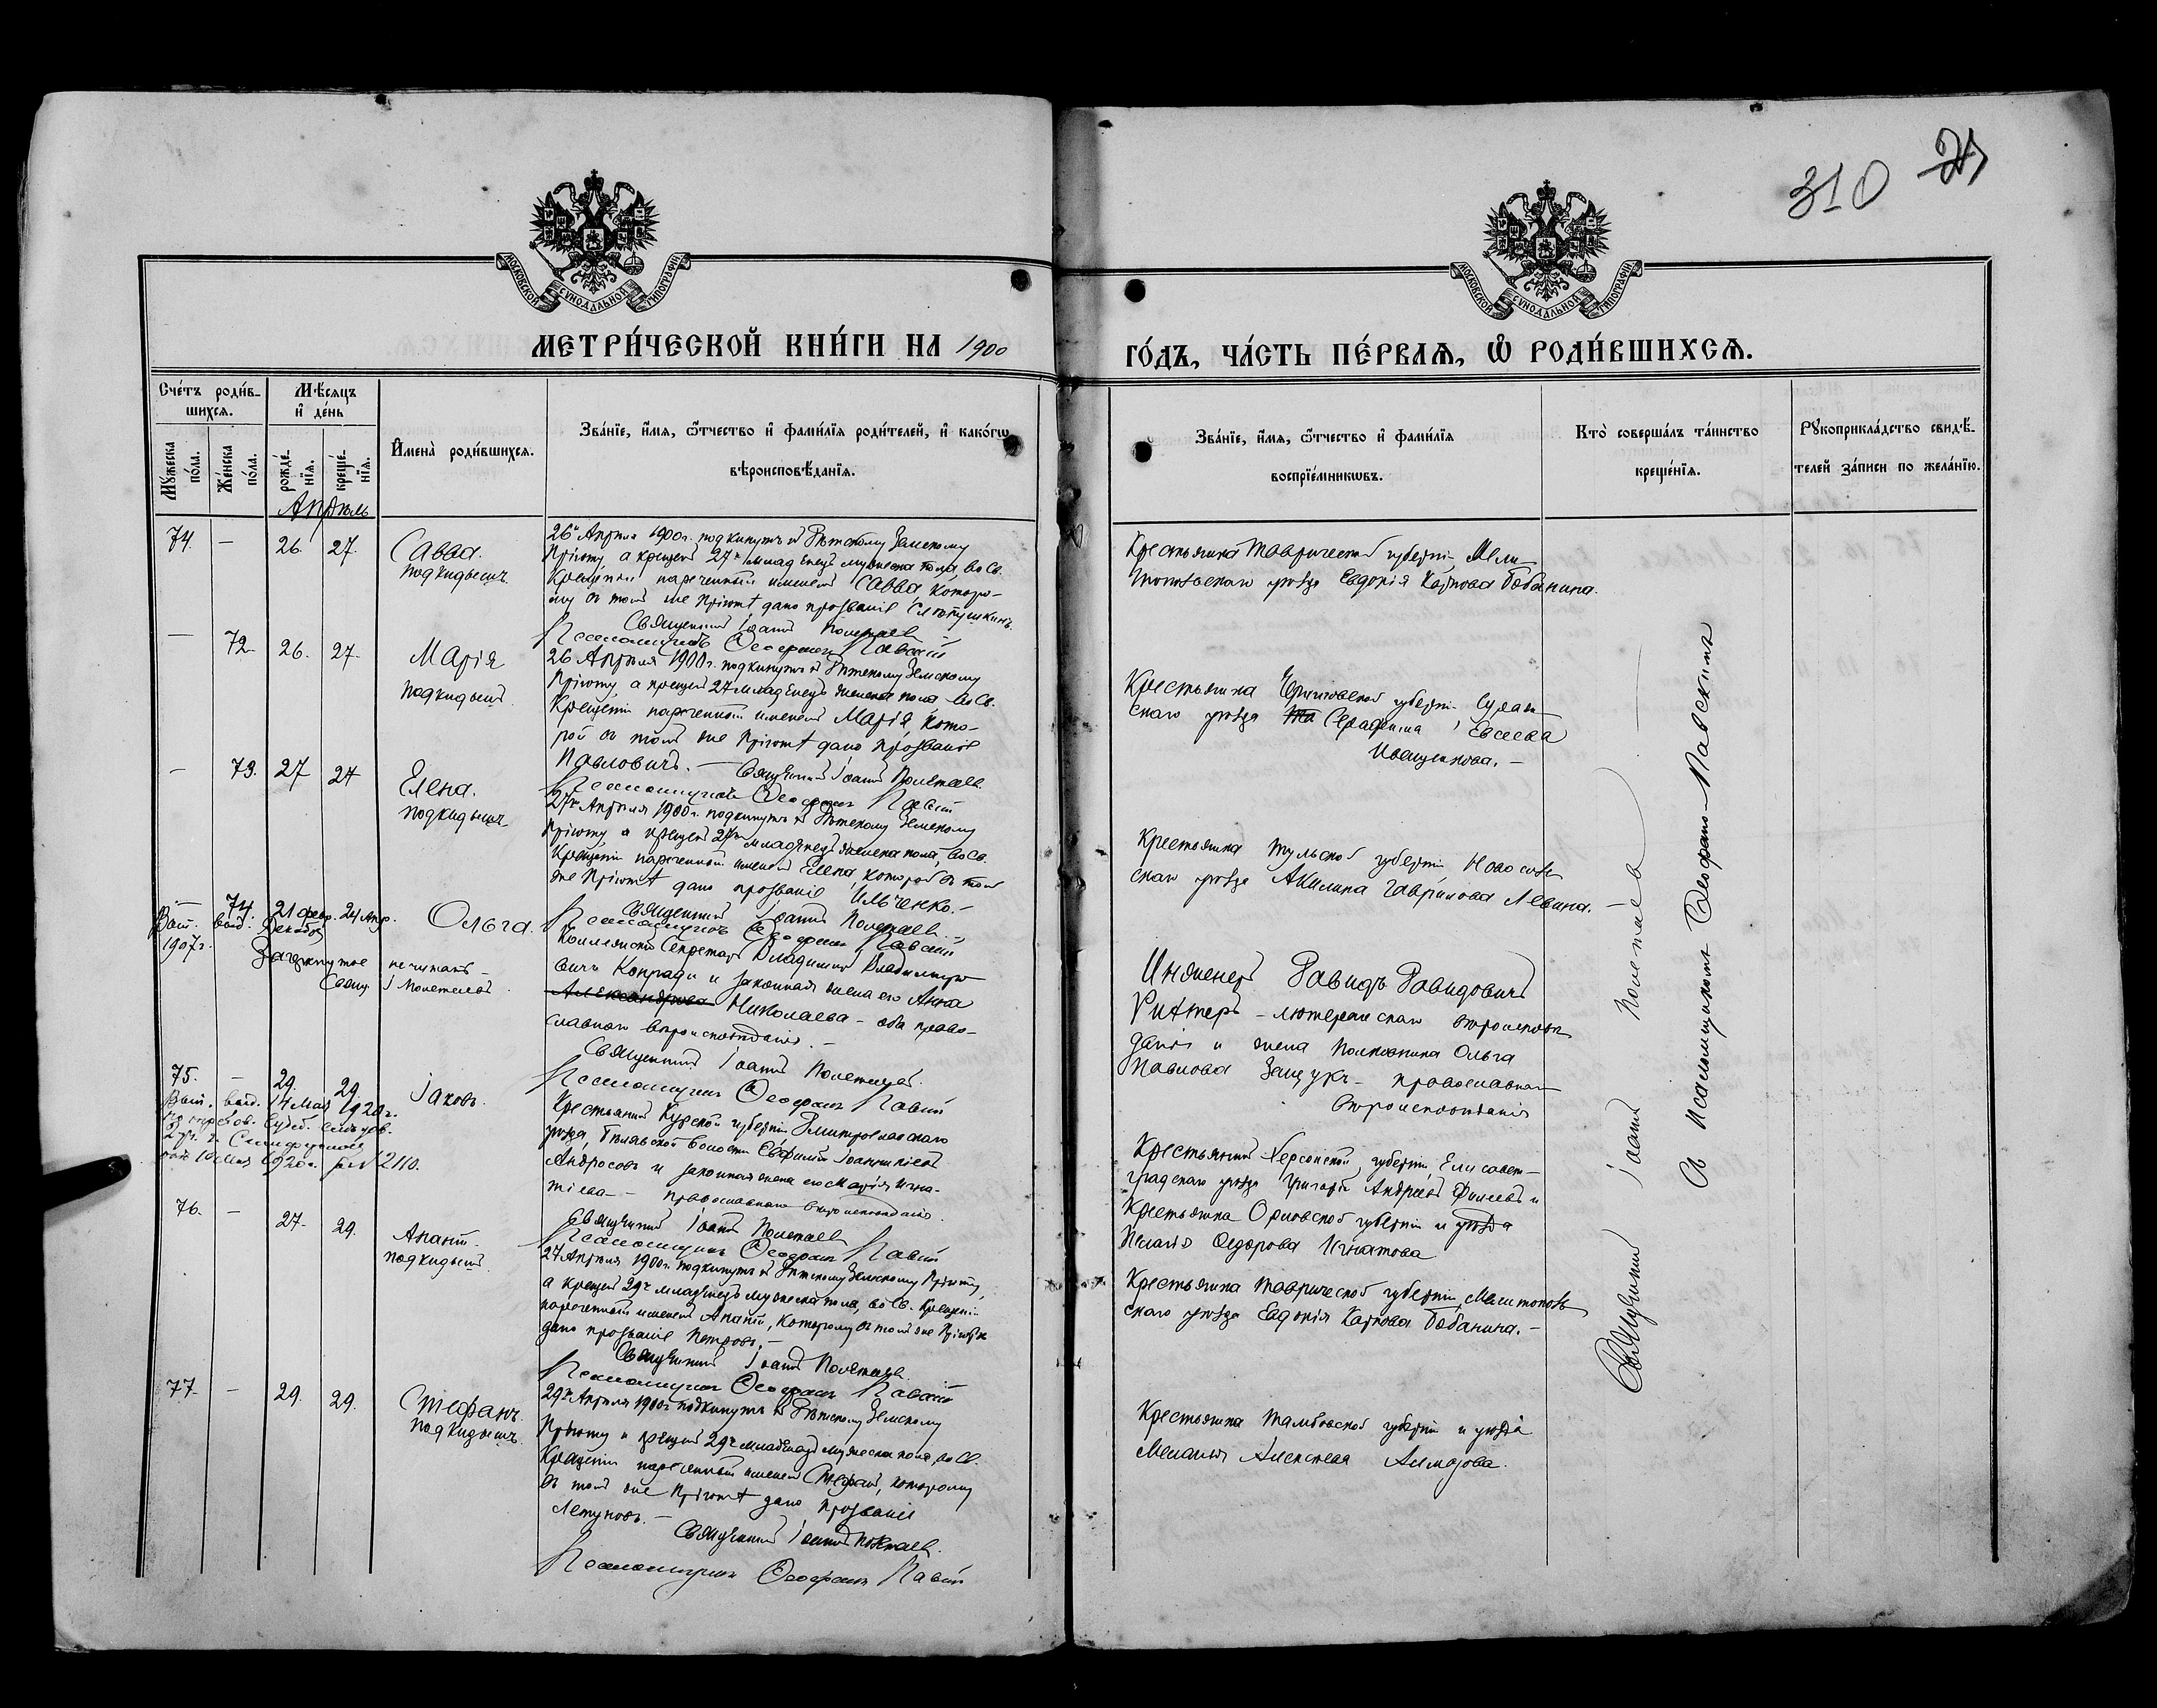 310 21
МОСКОВСКОЙ СѴНОДАЛЬНОЙ ТИПОГРАФІИ
МОСКОВСКОЙ СѴНОДАЛЬНОЙ ТИПОГРАФІИ
МЕТРИ́ЧЕСКОЙ КНИ́ГИ НА 1900
ГО́ДЪ, ЧА́СТЬ ПЕ́РВАѦ, Ѡ РОДИ́ВШИХСѦ.
Сче́тъ роди́в-
шихсѧ.
Мѣ́сѧцъ
и҆ де́нь
Мꙋ́жеска
по́ла.
Же́нска
по́ла.
рожде́-
нїѧ.
креще́-
нїѧ.
И҆мена̀ роди́вшихсѧ.
Зва́нїе, и҆́мѧ, ѻ҆́тчество и҆ фами́лїѧ роди́телей, и҆ како́гѡ
вѣроисповѣ́данїѧ.
Зва́нїе, и҆́мѧ, ѻ҆́тчество и҆ фами́лїѧ
воспрїе́мникѡвъ.
Кто̀ соверша́лъ та́инство
креще́нїѧ.
Рꙋкоприкла́дство свидѣ́-
телей за́писи по жела́нїю.
Апрѣль
74. — 26. 27.
Савва.
подкидышъ
26го Апрѣля 1900г. подкинутъ въ Дѣтскому Земскому
Пріюту, а крещенъ 27го младенецъ мужеска пола, во Св.
Крещеніи нареченный именемъ Савва, которо-
му въ томъ же Пріютѣ дано прозваніе
Священникъ Іоаннъ Полетаевъ
Псаломщикъ Ѳеофанъ Павскій
Крестьянка Таврической губерніи, Мели-
топольскаго уѣзда Евдокія Карпова Бабанина.
— 72. 26. 27.
Марія
подкидышъ
26 Апрѣля 1900г. подкинутъ въ Дѣтскому Земскому
Пріюту, а крещенъ 27 младенецъ женска пола во Св.
Крещеніи нареченный именемъ Марія, кото-
рой въ томъ же Пріютѣ дано прозваніе
Павловичъ. — Священникъ Іоаннъ Полетаевъ.
Псаломщикъ Ѳеофанъ Павскій
Крестьянка Черниговской губерніи Сураж-
скаго уѣзда Серафима Евсеева
Иващенкова. —
— 73. 27 27
Елена.
подкидышъ
27го Апрѣля 1900г. подкинутъ въ Дѣтскому Земскому
Пріюту, а крещенъ 27го младенецъ женска пола, во Св.
Крещеніи нареченный именемъ Елена, которой въ томъ
же Пріютѣ дано прозваніе Ильченко. —
Священникъ Іоаннъ Полетаевъ. —
Псаломщикъ Ѳеофанъ Павскій
Крестьянка Тульской губерніи Новосиль-
скаго уѣзда Акилина Гаврилова Левина. —
— 74. 21 февр. 24 Апр.
выд. Декабря
1907г.
Зачеркнутое
не читать —
Свящ. І Полетаевъ
Ольга.
Коллежскій Секретарь Владиміръ Владиміро-
вичъ Конради и законная жена его Анна
Александрова Николаева — оба право-
славнаго вѣроисповѣданія. —
Священникъ Іоаннъ Полетаевъ.
Псаломщикъ Ѳеофанъ Павскій
Инженеръ Давидъ Давидовичъ
Рихтеръ — лютеранскаго вѣроисповѣ-
данія и жена Полковника Ольга
Павлова Защукъ — православнаго
вѣроисповѣданія
75. — 29. 29.
выд. 14 Мая 1920г.
10 Мая 1920г. за № 2110.
Іаковъ.
Крестьянинъ Курской губерніи, Дмитріевскаго
уѣзда, волости Евфимій Іоанникіевъ
Андросовъ и законная жена его Марія Игна-
тіева — православнаго вѣроисповѣданія.
Священникъ Іоаннъ Полетаевъ
Псаломщикъ Ѳеофанъ Павскій
Крестьянинъ Херсонской губерніи, Елисавет-
градскаго уѣзда Григорій Андреевъ и
Крестьянка Орловской губерніи и уѣзда
Пелагія Ѳедорова Игнатова
76. — 27. 29.
подкидышъ
27 Апрѣля 1900г. подкинутъ въ Дѣтскому Земскому Пріюту,
а крещенъ 29го младенецъ мужеска пола, во Св. Крещеніи
нареченный именемъ которому въ томъ же Пріютѣ
дано прозваніе Петровъ. —
Священникъ Іоаннъ Полетаевъ.
Псаломщикъ Ѳеофанъ Павскій
Крестьянка Таврической губерніи, Мелитополь-
скаго уѣзда Евдокія Карпова Бабанина. —
77. — 29. 29.
Стефанъ.
подкидышъ
29го Апрѣля 1900г. подкинутъ въ Дѣтскому Земскому
Пріюту и крещенъ 29го младенецъ мужеска пола, во Св.
Крещеніи нареченный именемъ Стефанъ, которому
въ томъ же Пріютѣ дано прозваніе
Летуновъ. —
Священникъ Іоаннъ Полетаевъ.
Псаломщикъ Ѳеофанъ Павскій
Крестьянка Тамбовской губерніи и уѣзда
Меланія Алексѣева Алмазова.
Священникъ Іоаннъ Полетаевъ
Съ псаломщикомъ Ѳеофаномъ Павскимъ